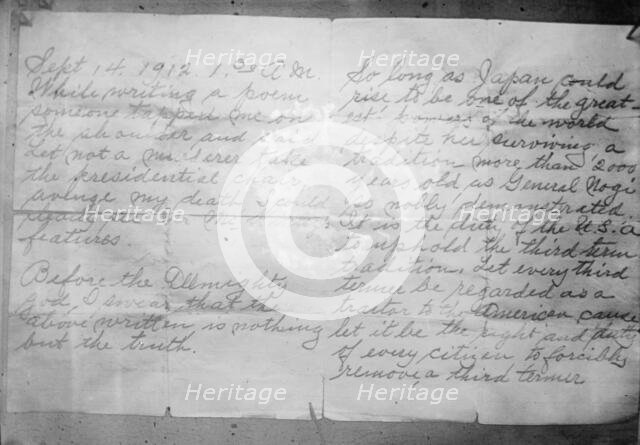 Sept 14. 1912. 1.30 A.M.
While writing a poem
someone tapped me on
the shoulder and said
Let not a murderer take
the presidential chair
avenge my death I could
features
Before the Allmighty
God, I swear that the
above written is nothing
but the truth.
So long as Japan could
rise to be one of the great
est powers of the world
despite her surviving a
tradition more than 2000,
years old as General Nogi
so nobly demonstrated
It is the duty of the U.S.A
to uphold the third term
tradition, Let every third
termer be regarded as a
traitor to the American cause
let it be the right and duty
of every citizen to forcibly
remove a third termer
Heritage
Heritage
Heritage
Heritage
Heritage
Heritage
Heritage
Heritage